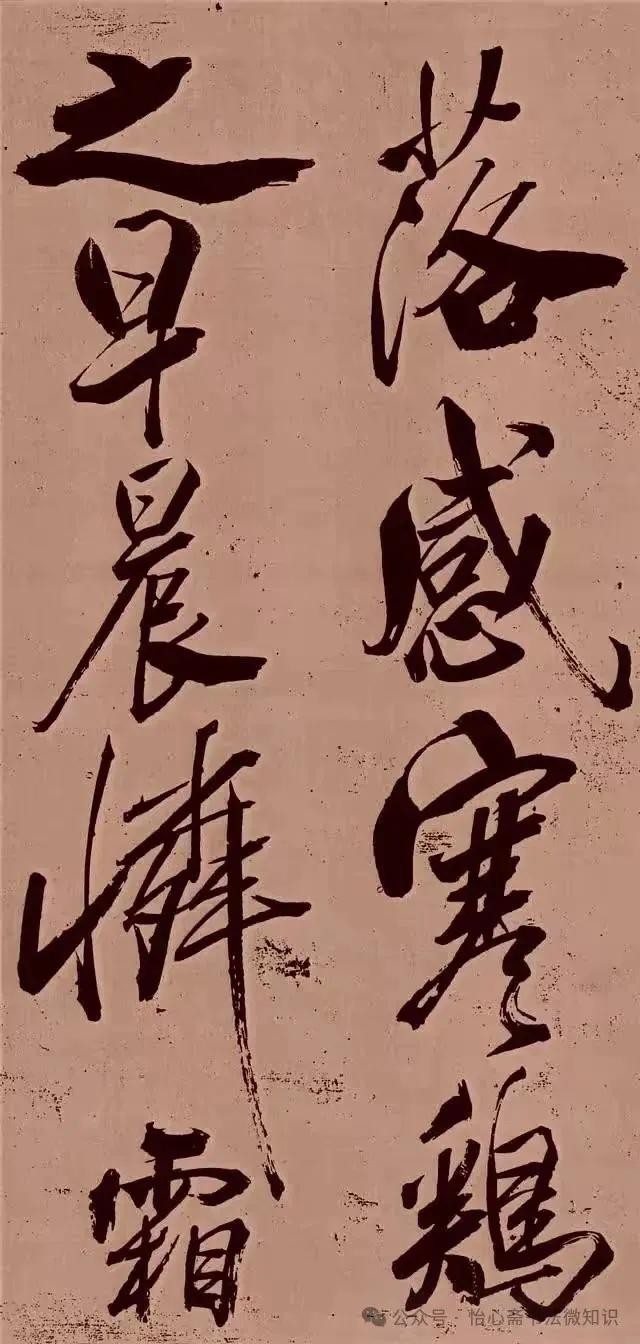 落感寒鷄
之早晨憐霜
公众号 · 怡心斋书法微知识